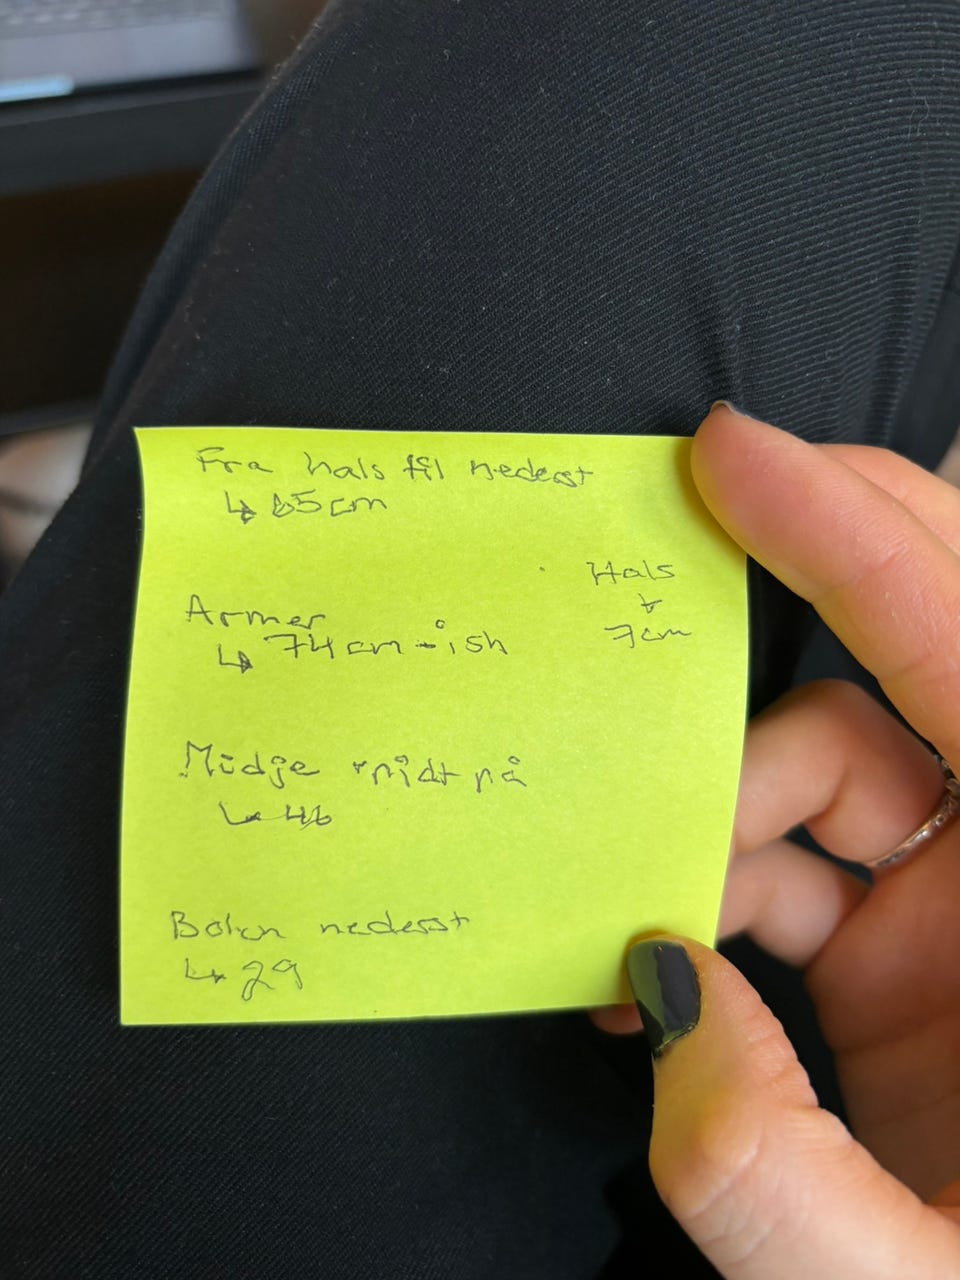 Fra hals til nederst
↳ 65cm
Hals
↓
7cm
Armer
↳ 74cm-ish
Midje midt på
↳ 46
Bolen nederst
↳ 29